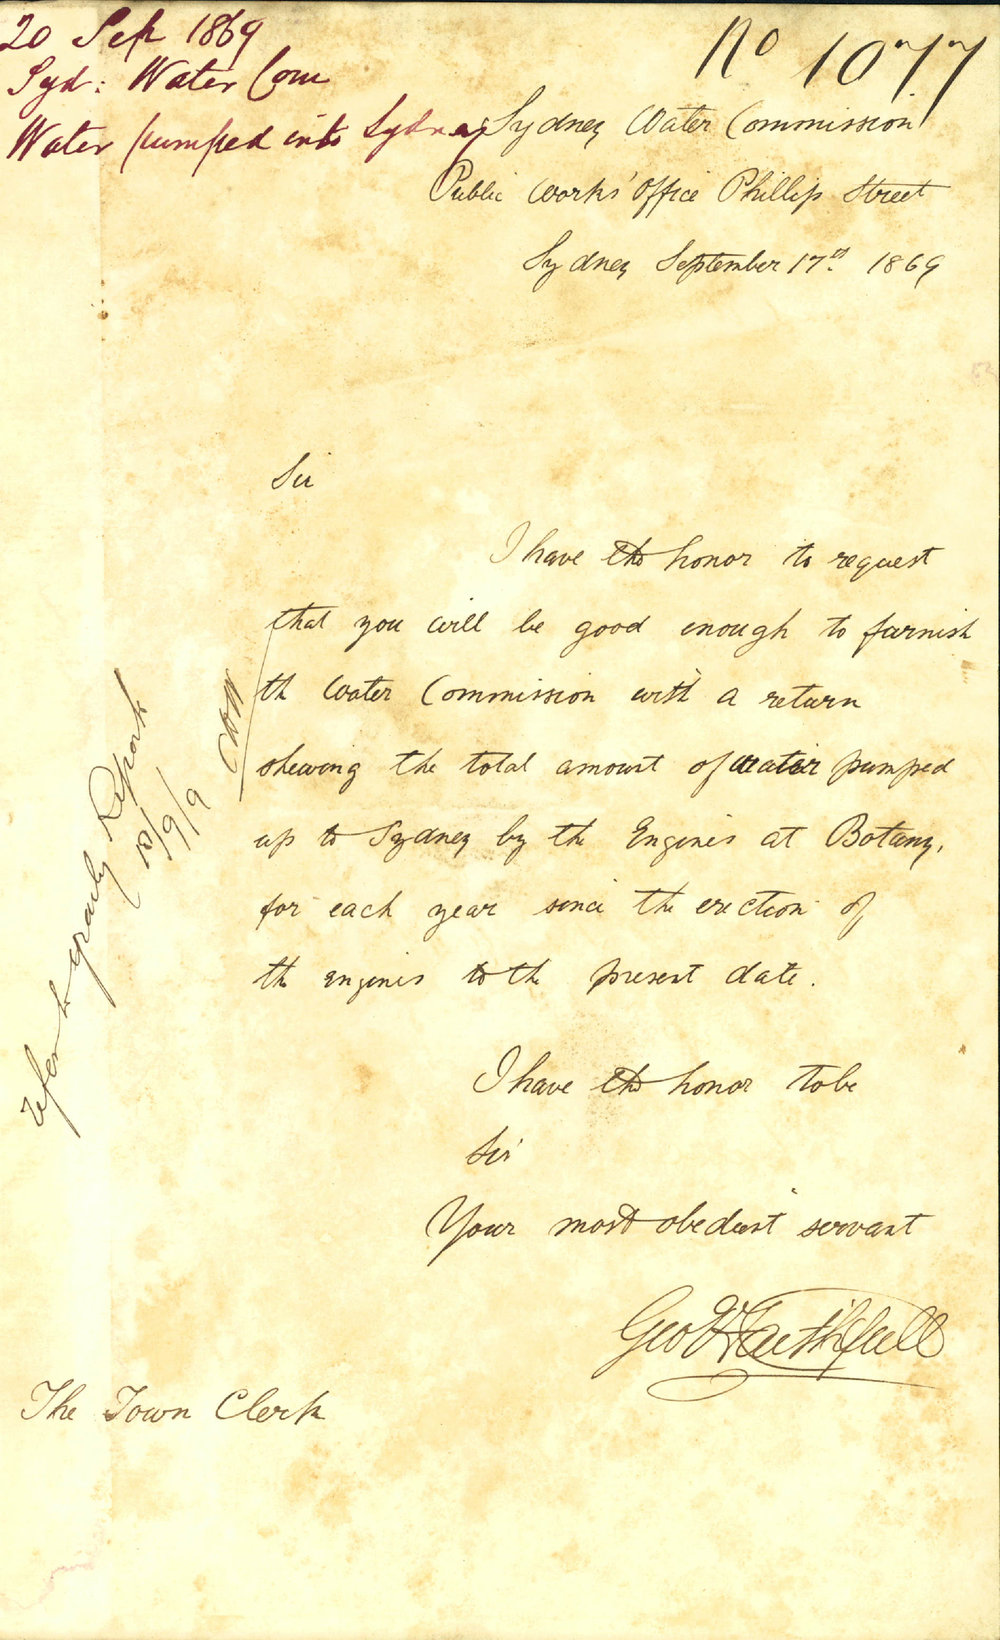 20 Sep 1869
Syd: Water Com
Water pumped into Sydney
No 1077
Sydney Water Commission
Public Works' Office Phillip Street
Sydney September 17th 1869
Sir
I have the honor to request
that you will be good enough to furnish
the Water Commission with a return
shewing the total amount of water pumped
up to Sydney by the Engines at Botany,
for each year since the erection of
the engines to the present date.
I have the honor to be
Sir
Your most obedient servant
Geo W Faithfull
The Town Clerk
refer to yearly Reports
/9/9